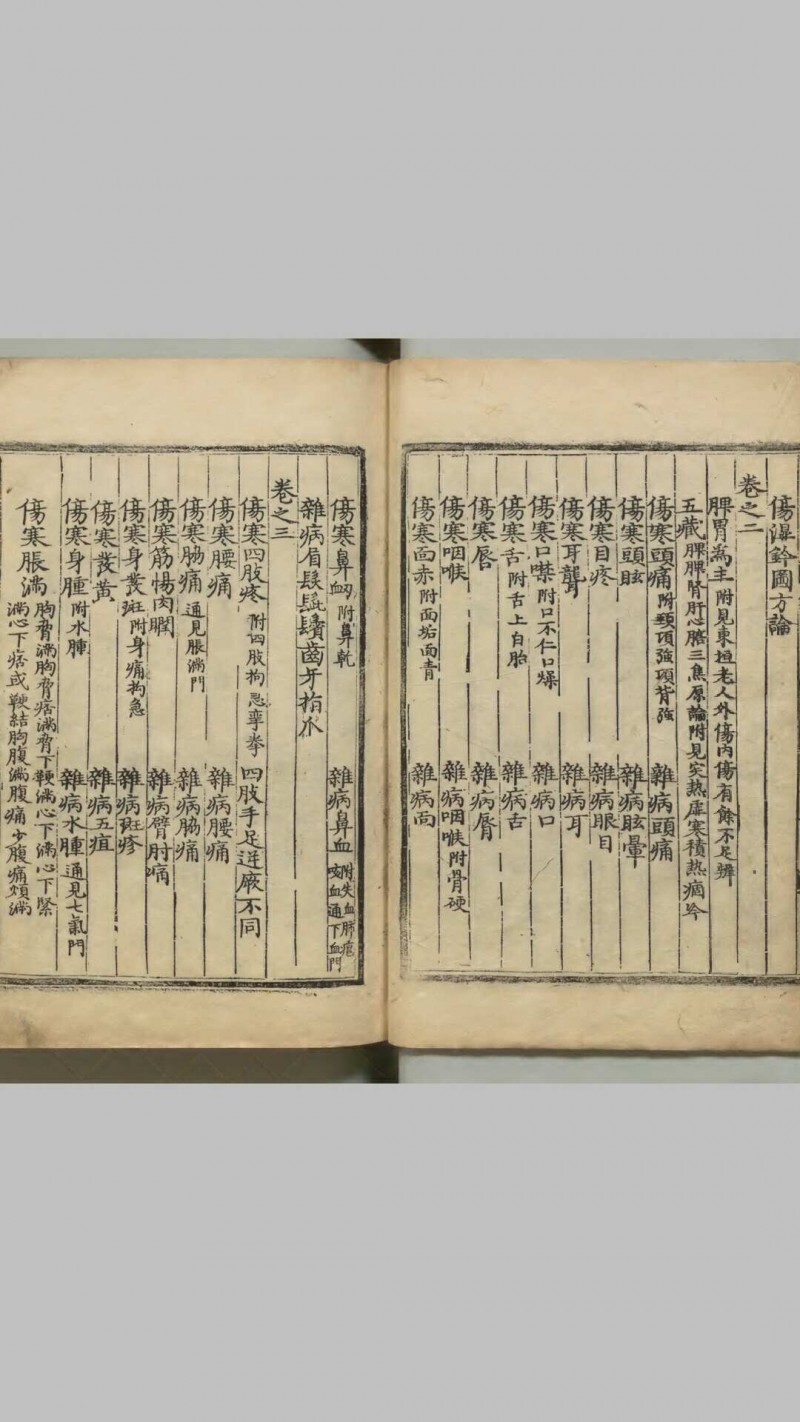 傷濕鈐圖方論
卷之二
脾胃為主 附見東垣老人外傷內傷有餘不足辨
五藏 脾腎肝心膽三焦原論附見实热虛寒積熱病
傷寒頭痛 附頸項強項背強 雜病頭痛
傷寒頭眩 雜病眩暈
傷寒目疼 雜病眼目
傷寒耳聾 雜病耳
傷寒口噤 附口不仁口燥 雜病口
傷寒舌 附舌上白胎 雜病舌
傷寒唇 雜病脣
傷寒咽喉 雜病咽喉 附骨硬
傷寒面赤 附面垢面青 雜病面
傷寒鼻衂 附鼻乾 雜病鼻血 附失血肺瘡咳血通下血門
雜病眉髮髭鬚齒牙指爪
卷之三
傷寒四肢疼 附四肢拘急攣拳 四肢手足逆厥不同
傷寒腰痛 雜病腰痛
傷寒脇痛 通見脹滿門 雜病脇痛
傷寒筋惕肉瞤 雜病臂肘痛
傷寒身發斑 附身痛拘急 雜病斑疹
傷寒發黃 雜病五疸
傷寒身腫 附水腫 雜病水腫 通見七氣門
傷寒脹滿 胸脅滿胸脅痞滿脅下鞕滿心下滿心下緊
滿心下痞或鞕結胸腹滿腹痛少腹痛煩滿